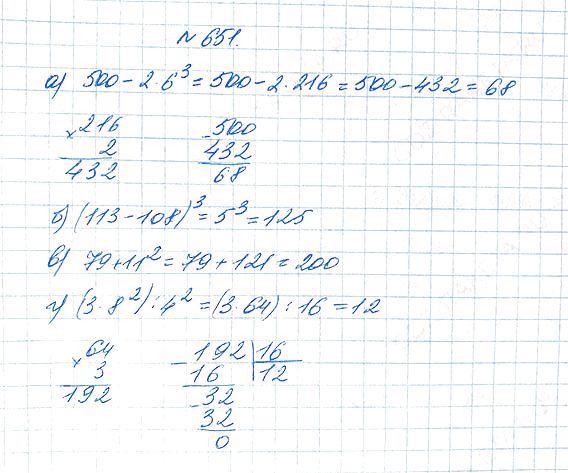 № 651.
а) 500 - 2 · 6³ = 500 - 2 · 216 = 500 - 432 = 68
× 216
2
432
- 500
432
68
б) (113 - 108)³ = 5³ = 125
в) 79 + 11² = 79 + 121 = 200
г) (3 · 8²) : 4² = (3 · 64) : 16 = 12
× 64
3
192
- 192 | 16
16 | 12
- 32
32
0